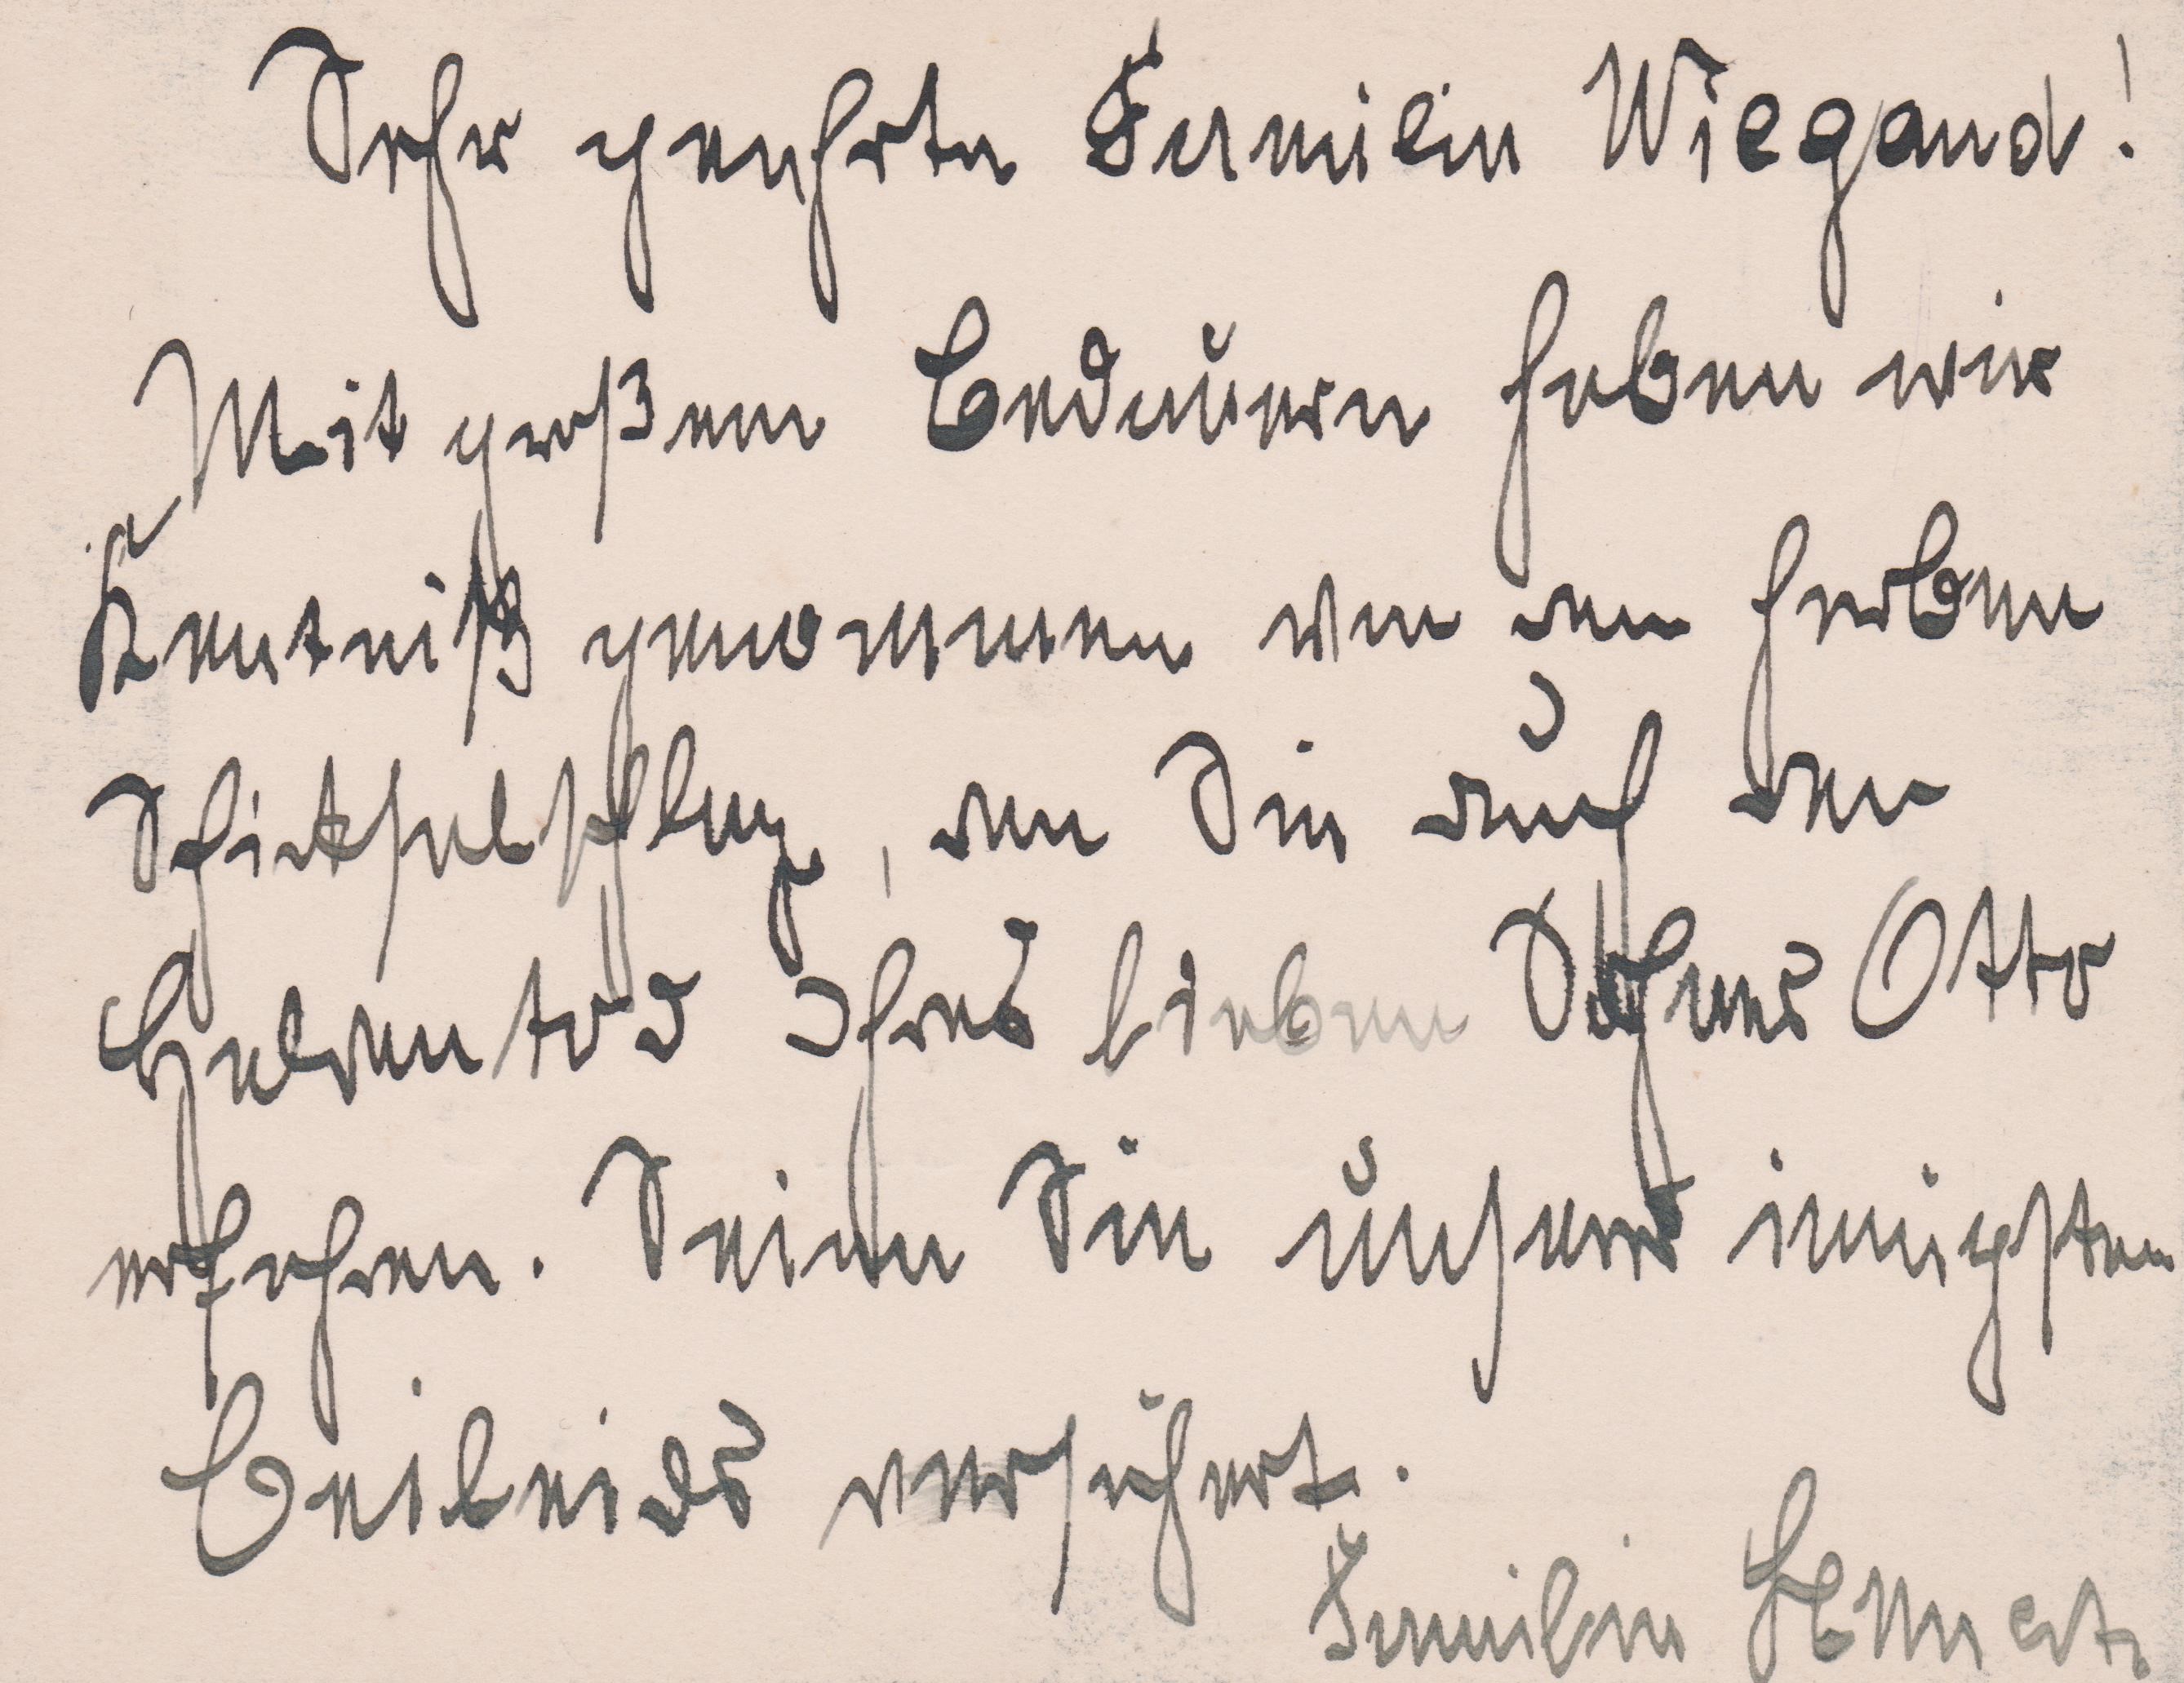 Sehr geehrte Familie Wiegand!
Mit großem Bedauern haben wir
Kentniß genommen von den herben
Schicksalsschlag, den Sie durch den
Heldentod Ihres lieben Sohnes Otto
erfahren. Seien Sie unsers innigsten
Beileids versichert.
Familie